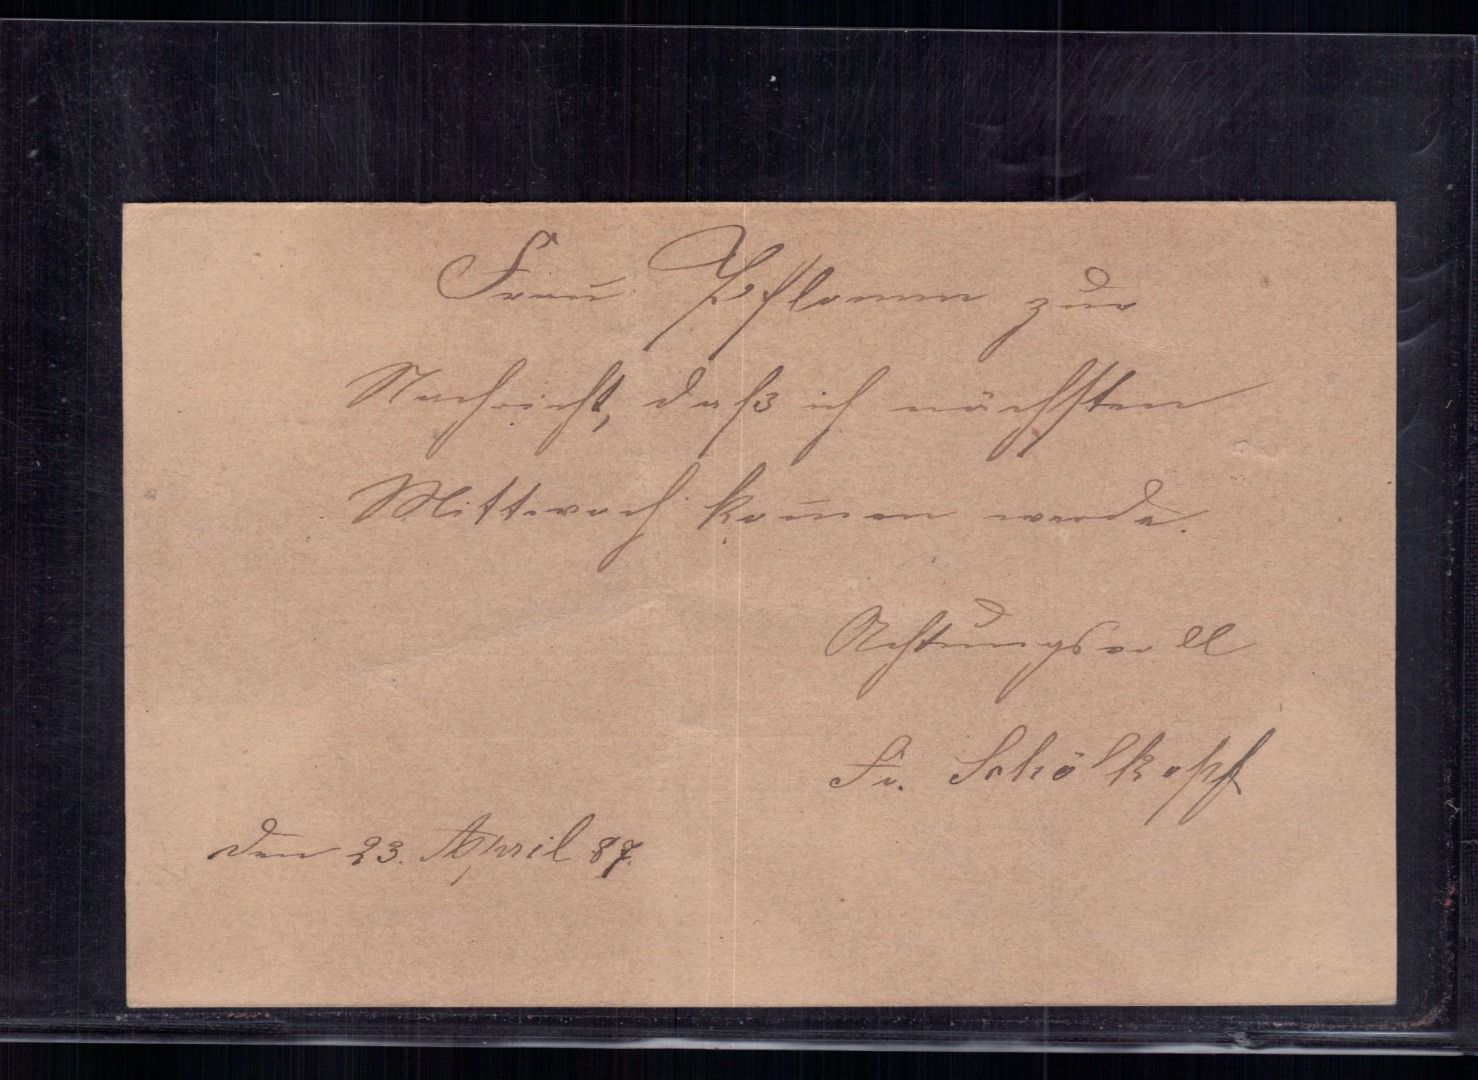 Frau Pflomm zur
Nachricht, daß ich nächsten
Mittwoch kom̄en werde.
Achtungsvoll
Fr. Schölkopf
den 23. April 87.